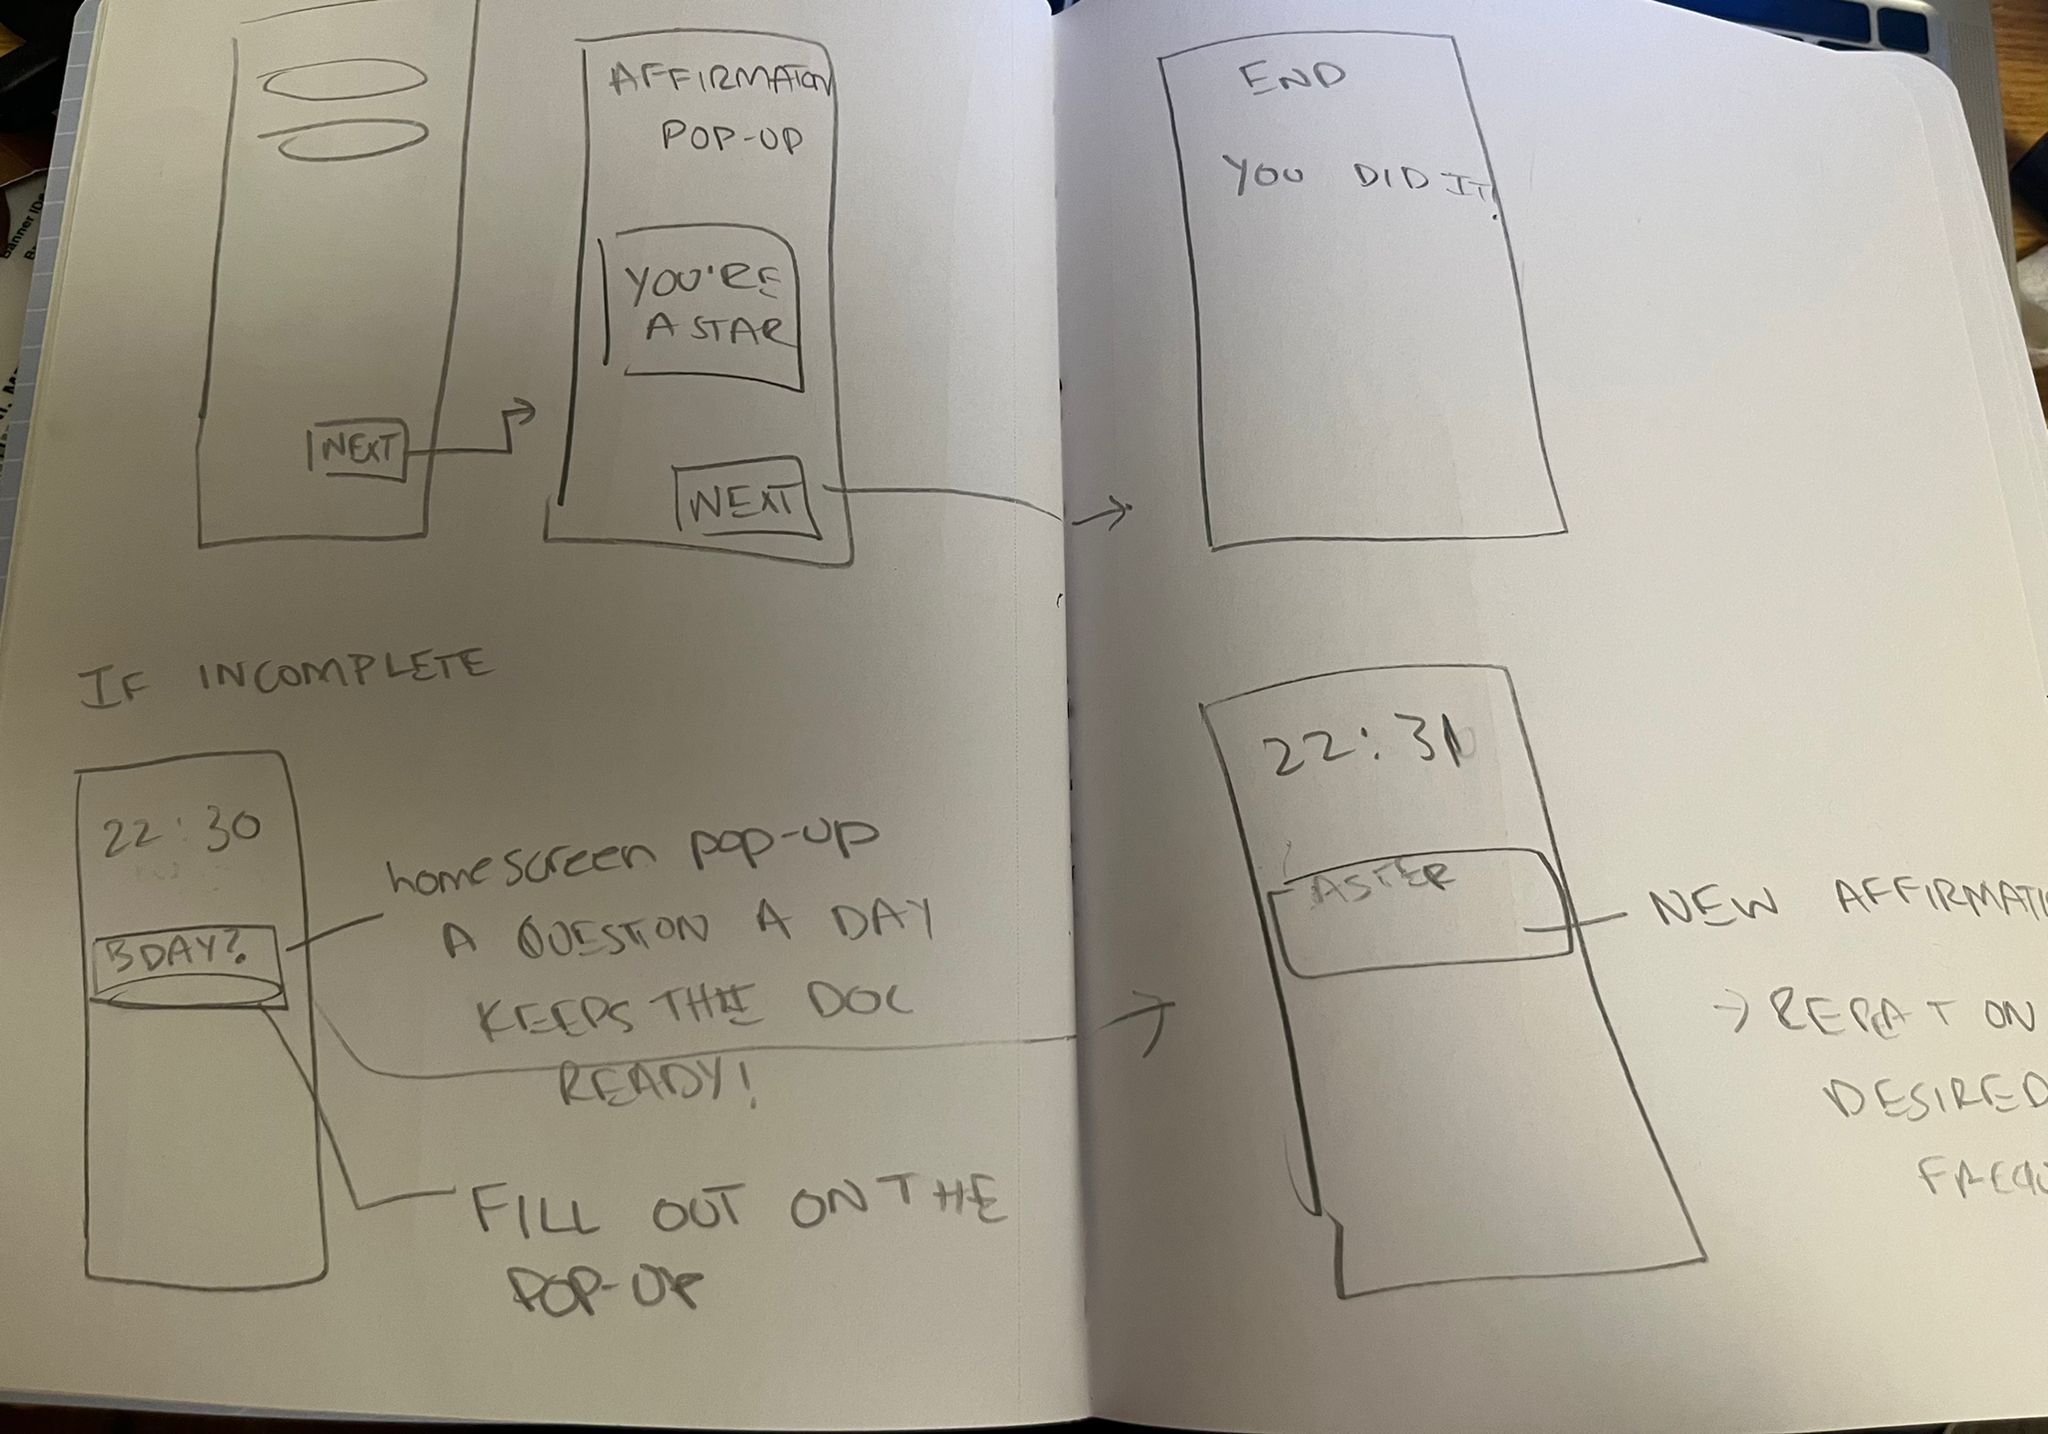 AFFIRMATION
POP-UP
YOU'RE
A STAR
NEXT
NEXT
END
YOU DID IT!
IF INCOMPLETE
22:30
BDAY?
homescreen pop-up
A QUESTION A DAY
KEEPS THE DOC
READY!
FILL OUT ON THE
POP-UP
22:31
ASTER
NEW AFFIRMATI
→ REPEAT ON
DESIRED
FREQU
Banner IDs